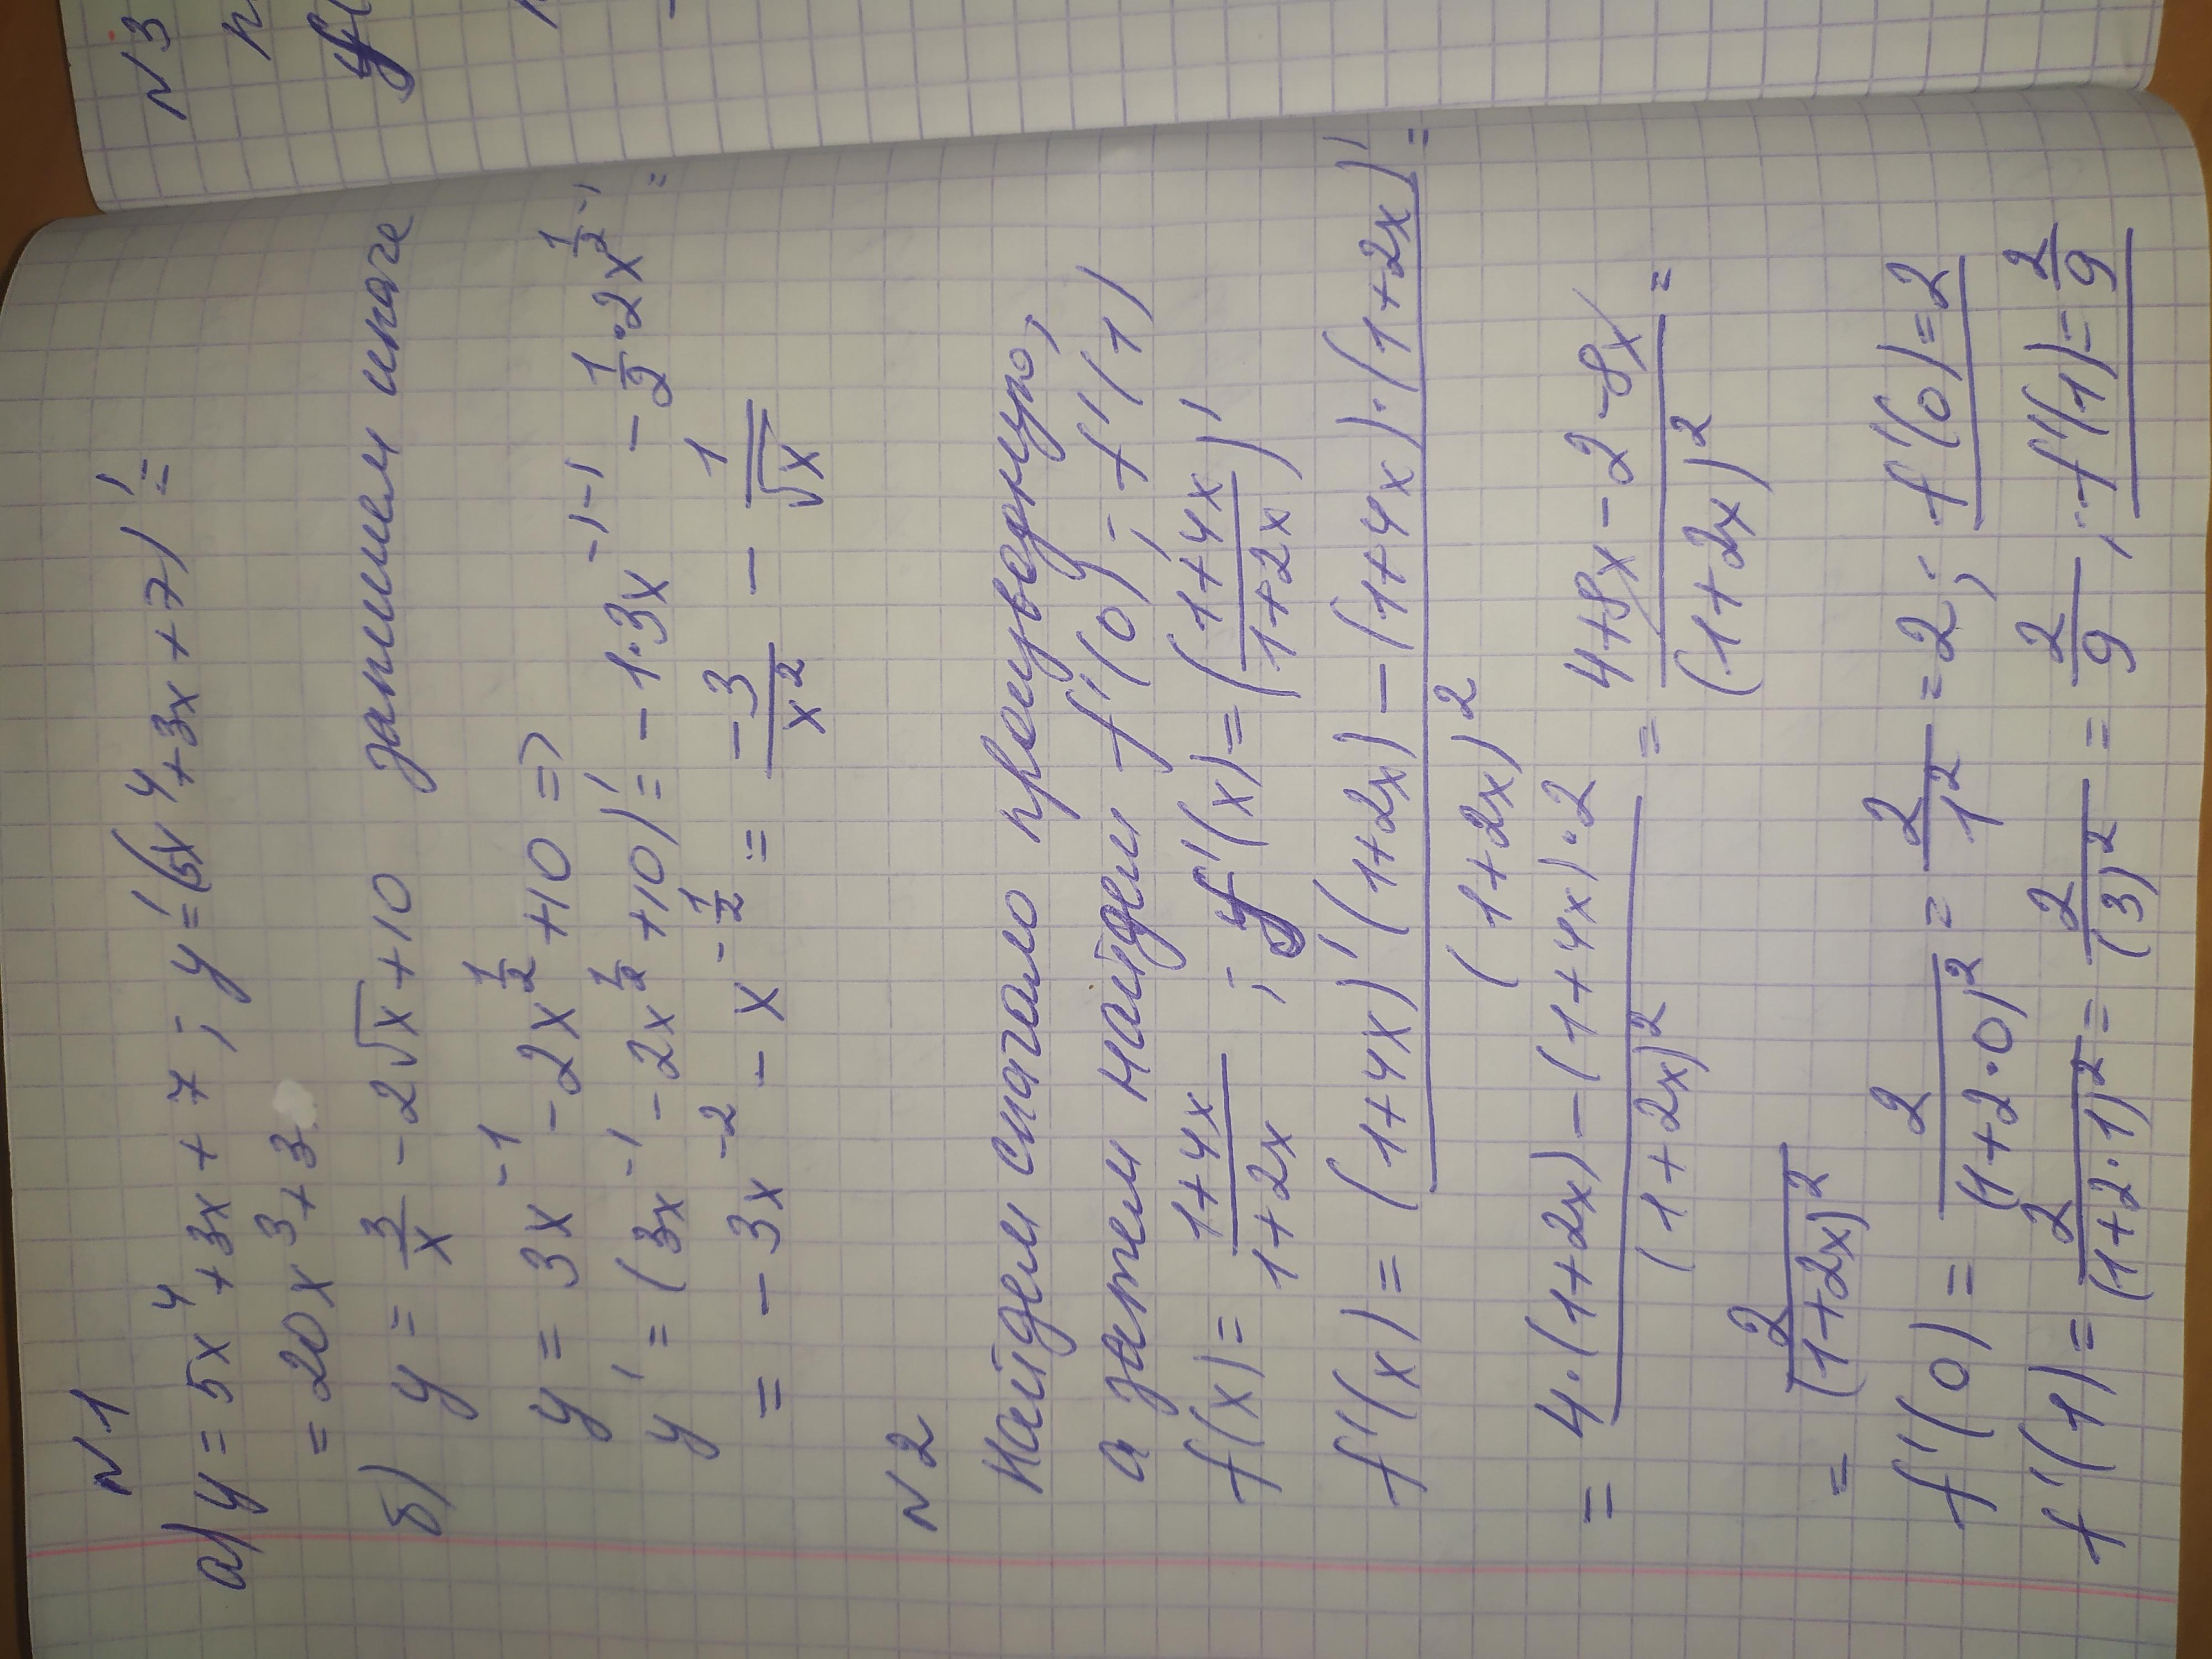 N1
а) y = 5x⁴ + 3x + 7 ; y' = (5x⁴ + 3x + 7)' =
= 20x³ + 3
б) y = 3/x - 2√x + 10 запишем иначе
y = 3x⁻¹ - 2x^(1/2) + 10 =>
y' = (3x⁻¹ - 2x^(1/2) + 10)' = -1·3x^(-1-1) - 1/2·2x^(1/2-1) =
= -3x⁻² - x^(-1/2) = -3/x² - 1/√x
N2
Найдем сначало производную,
а затем найдем f'(0) ; f'(1)
f(x) = (1+4x)/(1+2x) ; f'(x) = ((1+4x)/(1+2x))'
f'(x) = ((1+4x)'(1+2x) - (1+4x)·(1+2x)')/(1+2x)² =
= (4·(1+2x) - (1+4x)·2)/(1+2x)² = (4+8x-2-8x)/(1+2x)² =
= 2/(1+2x)²
f'(0) = 2/(1+2·0)² = 2/1² = 2 ; f'(0) = 2
f'(1) = 2/(1+2·1)² = 2/(3)² = 2/9 ; f'(1) = 2/9
N3